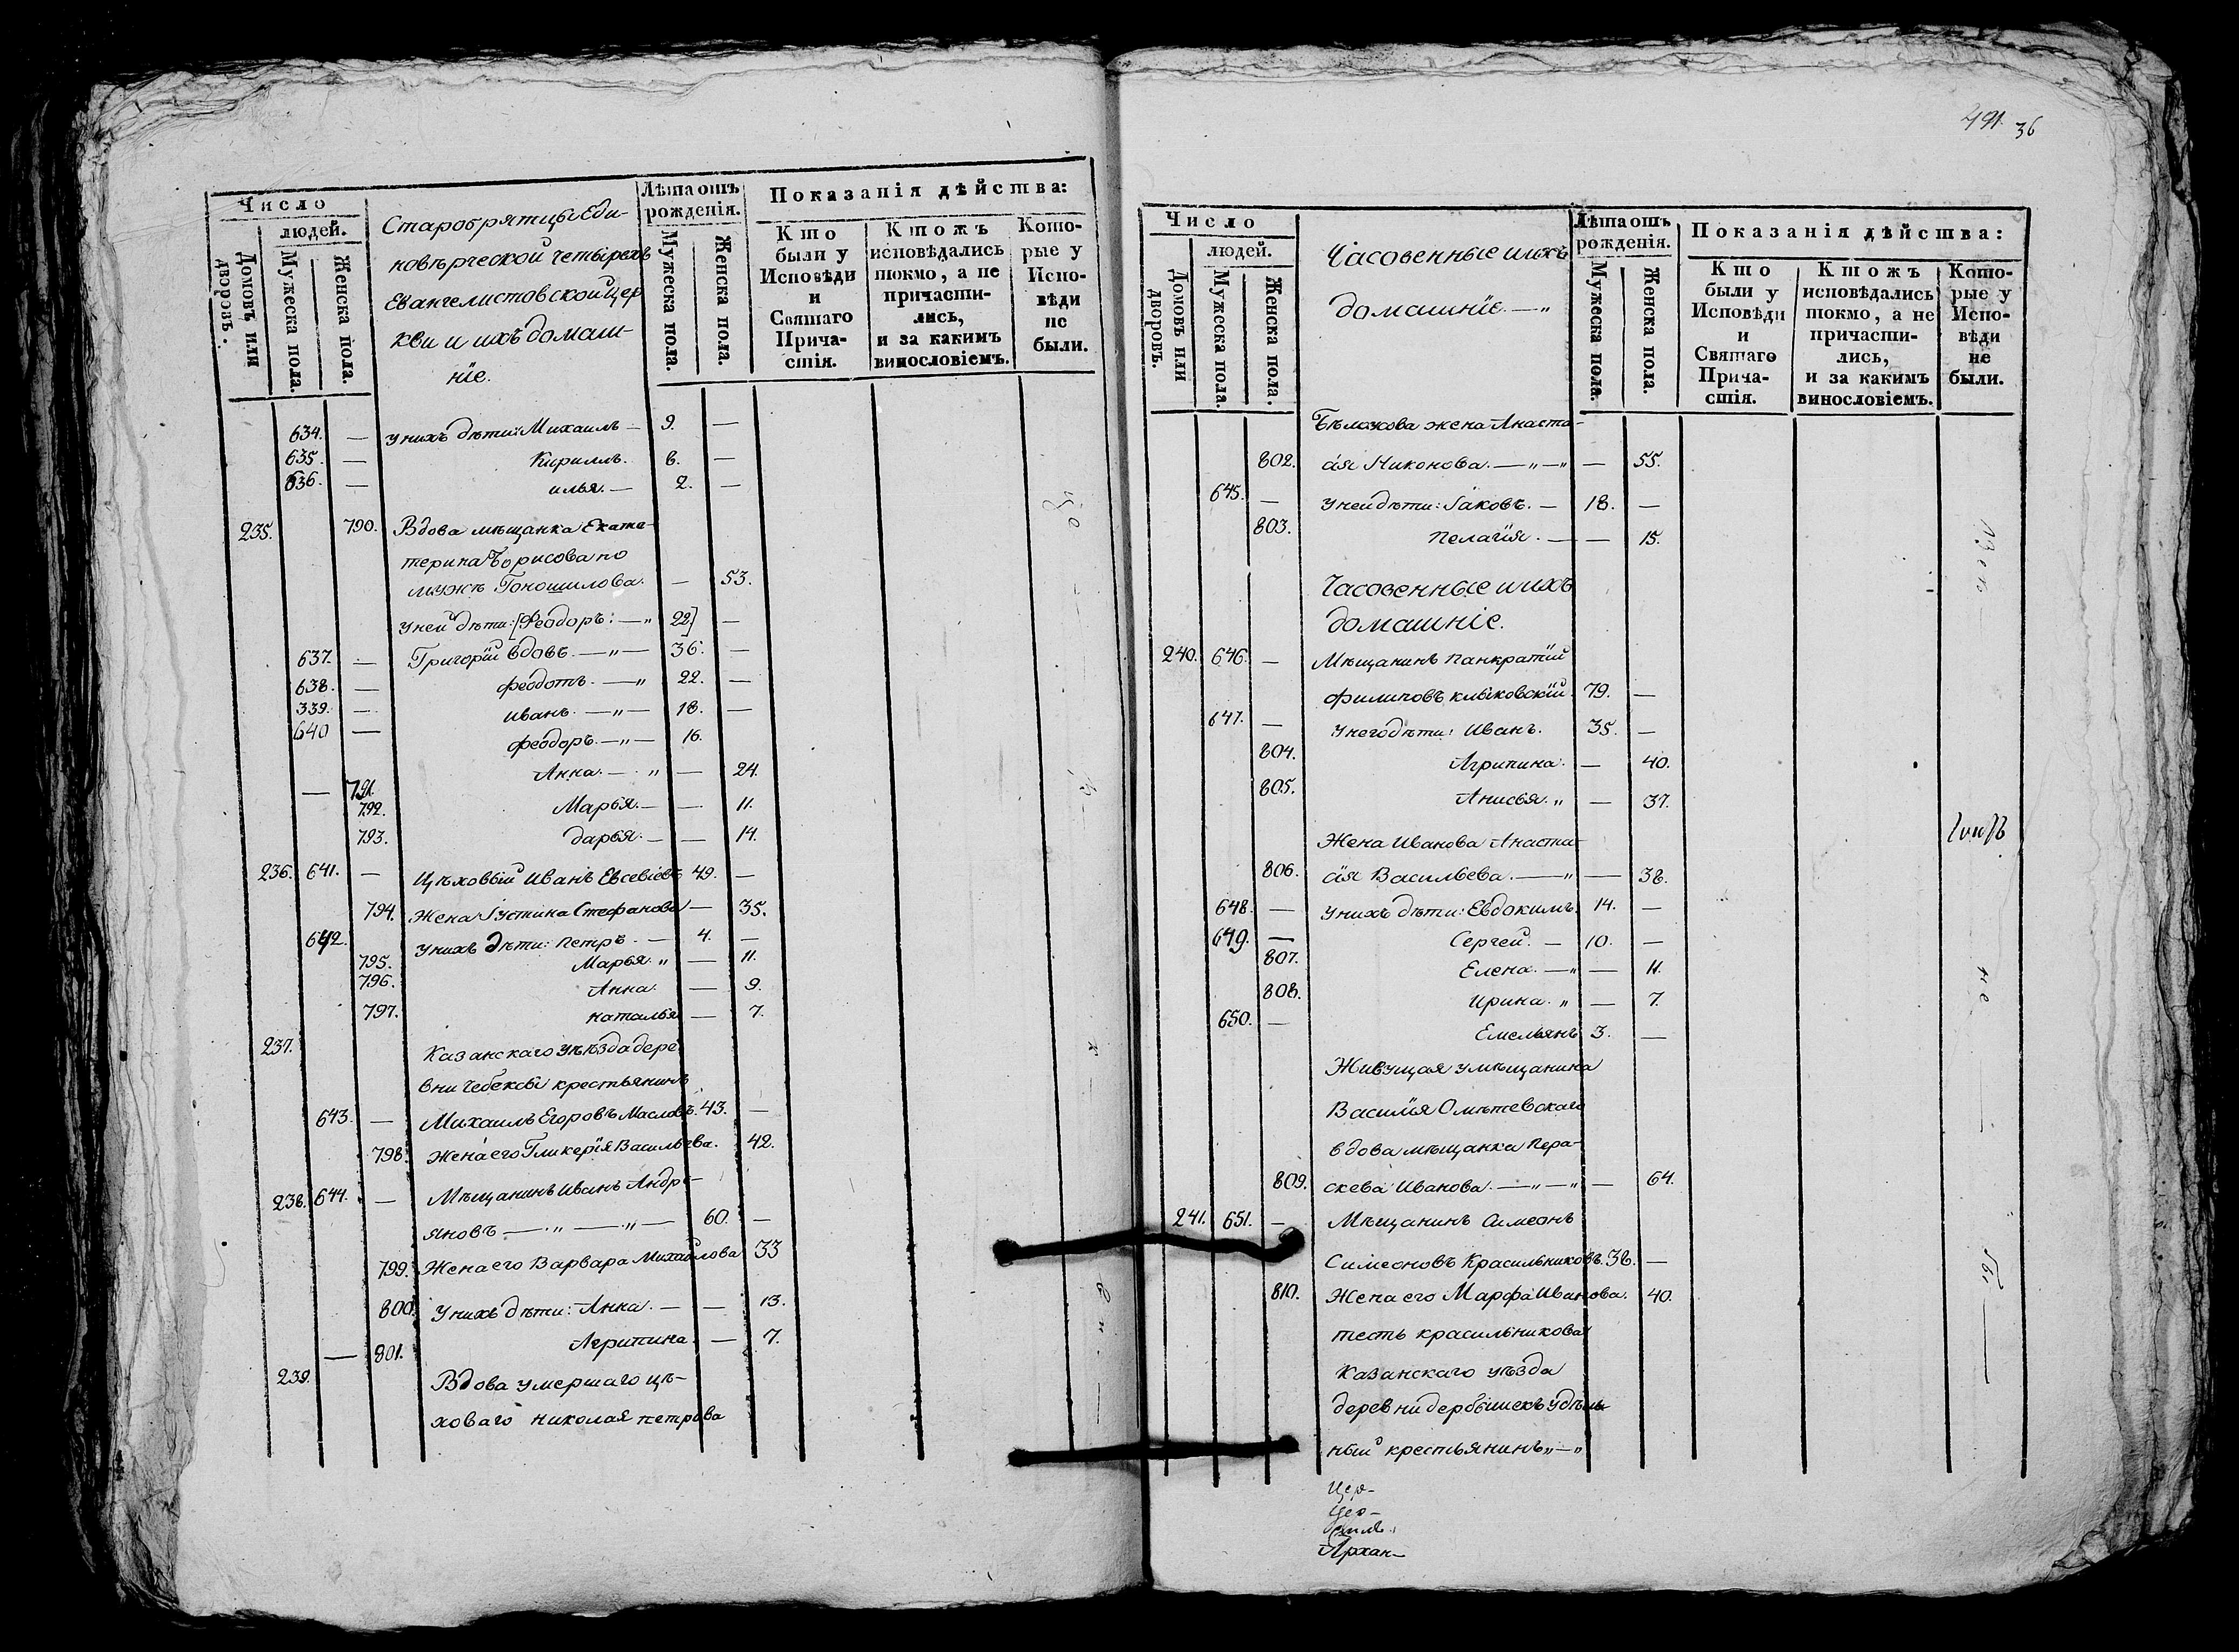 Число
людей.
Домовъ или дворовъ.
Мужеска пола.
Женска пола.
Старобрятцы Еди-
новѣрческой четырехъ
Евангелистовской цер
кви и ихъ домаш-
нїе.
Лѣта отъ рожденія.
Мужеска пола.
Женска пола.
Показанія дѣйства:
Кто были у Исповѣди и Святаго Прича-стія.
Ктожъ исповѣдались токмо, а не причасти-лись, и за какимъ винословіемъ.
Кото-рые у Испо-вѣди не были.
634. — у нихъ дѣти: Михаилъ — 9. —
635. — Кириллъ. 6. —
636. — илья. — 2. —
235. 790. Вдова мѣщанка Екате-
терина Борисова по
мужѣ Гоношилова. — 53.
у ней дѣти: [Феодоръ: — „ 22] —
637. — Григорїй вдовъ. — „ — 36. —
638. — феодотъ. — „ 22. —
339. — иванъ. — „ — 18. —
640 — феодоръ. — „ — 16.
— 791. Анна. — „ — 24.
792. Марья. — — 11.
793. дарья. — — 14.
236. 641. — Цѣховый Иванъ Евсевіевъ 49. —
794. Жена Іустина Стефанова — 35.
642. у нихъ дѣти: петръ. — 4. —
795. Марья. „ — 11.
796. Анна. — 9.
797. наталья — 7.
237. Казанскаго уѣзда дере
вни Чебексы крестьянинъ
643. — Михаилъ Егоровъ Масловъ. 43. —
798. Жена его Гликерїя Васильева. 42.
238. 644. — Мѣщанинъ Иванъ Андре-
яновъ — „ — „ — 60. —
799. Жена его Варвара Михайлова 33
800. у нихъ дѣти: Анна. — — 13.
— 801. Агрипина. — 7.
239. Вдова умершаго цѣ-
ховаго николая петрова
491. 36
Число
людей.
Домовъ или дворовъ.
Мужеска пола.
Женска пола.
Часовенные и ихъ
домашнїе. — „
Лѣта отъ рожденія.
Мужеска пола.
Женска пола.
Показанія дѣйства:
Кто были у Исповѣди и Святаго Прича-стія.
Ктожъ исповѣдались токмо, а не причасти-лись, и за какимъ винословіемъ.
Кото-рые у Испо-вѣди не были.
жена Анаста-
802. ая Никонова. — „ — „ — 55.
645. — у ней дѣти: Іаковъ. — 18. —
803. пелагїя. — — 15.
Часовенные и ихъ
домашніе.
240. 646. — Мѣщанинъ панкратїй
филиповъ клыковскїй. 79. —
647. — у него дѣти: Иванъ. 35. —
804. Агрипина. — 40.
805. Анисья. „ — 37.
Жена Иванова Анаста-
806. ая Васильева. — „ — 38.
648. — у нихъ дѣти: Евдокимъ. 14. —
649. — Сергей. — 10. —
807. Елена. — „ — 11.
808. Ирина. „ — 7.
650. — Емельянъ 3. —
Живущая у мѣщанина
Василїя Омѣтевскаго
вдова мѣщанка пера-
809. скева Иванова. — „ — „ — 64.
241. 651. — Мѣщанинъ Симеонъ
Симеоновъ Красильниковъ. 38. —
810. Жена его Марфа Иванова. 40.
тесть красильникова
Казанскаго уѣзда
деревни дербышекъ удѣль
ный крестьянинъ „ — „
Цер-
Цер-
Архан-